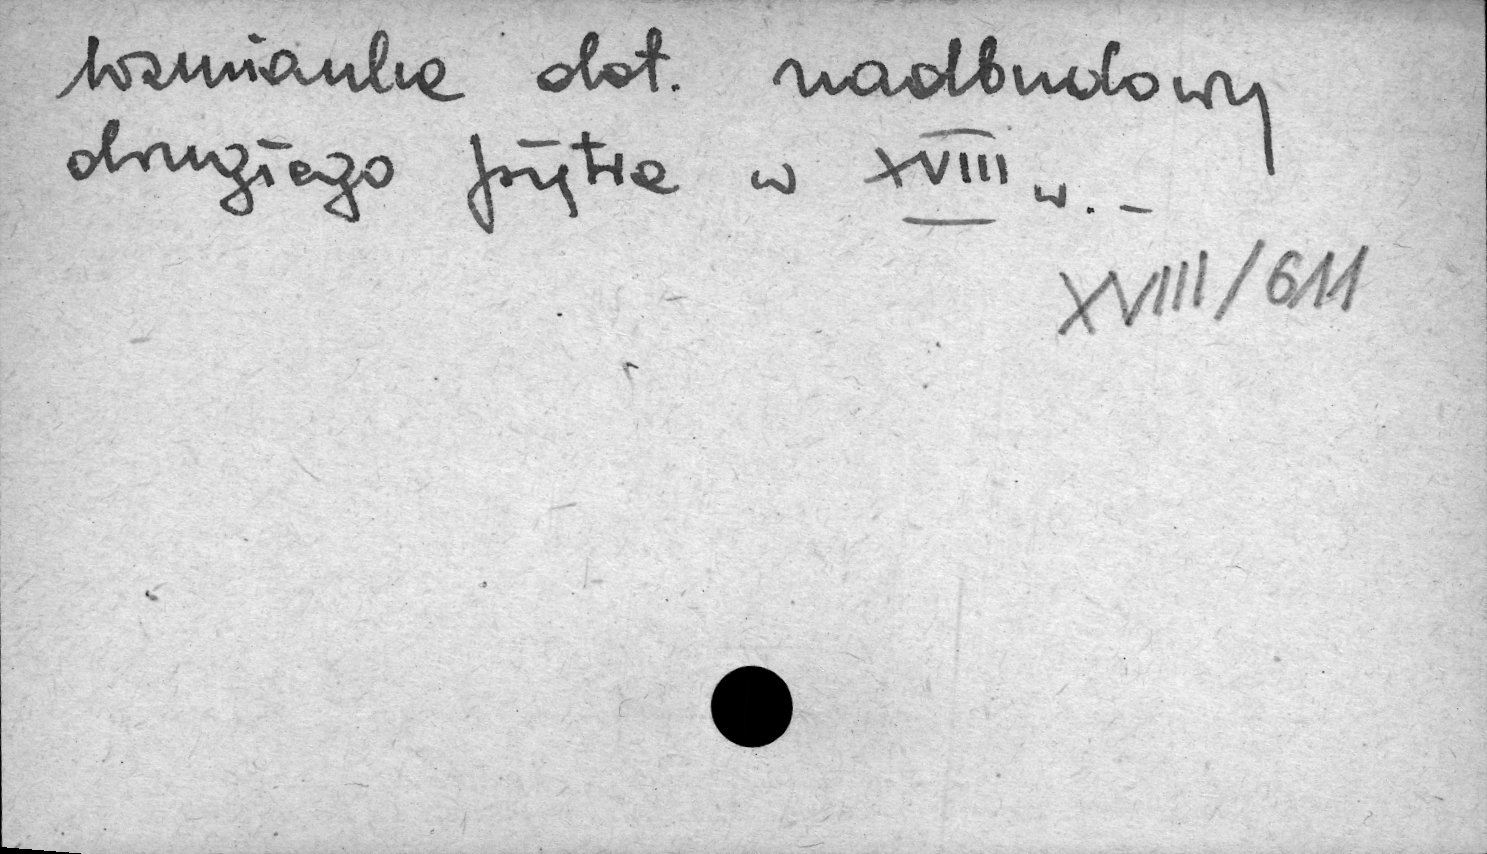 wzmianka dot. nadbudowy
drugiego piętra w XVIII w. –
XVIII/611